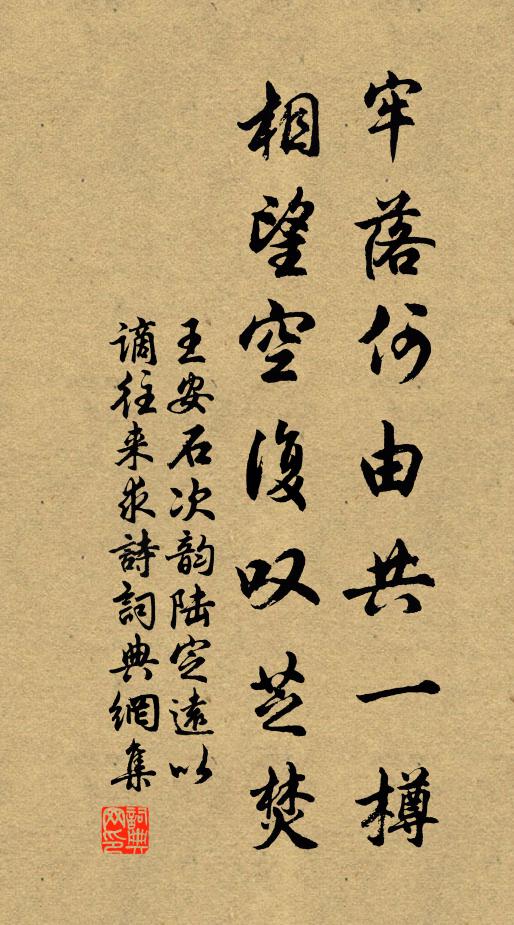 牢落何由共一樽
相望空復叹芝焚
王安石次韵陆定遠以
谪往来求詩詞典網集
詞典网印